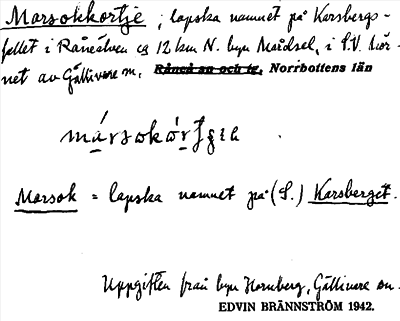 Marsokkortje; lapska namnet på Karsbergs-
fallet i Råneälven ca 12 km N. byn Mårdsel, i S.V. hör-
net av Gällivare sn. Råneå sn och tg, Norrbottens län
Marsok = lapska namnet på (S.) Karsberget.
Uppgiften från byn Hornberg, Gällivare sn.
EDVIN BRÄNNSTRÖM 1942.